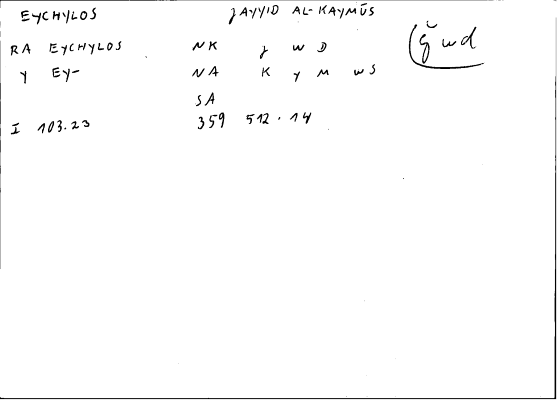 EYCHYLOS JAYYID AL-KAYMŪS
RA EYCHYLOS NK J W D
Y EY- NA K Y M WS
SA
I 103.23 359 512.14
ǧwd